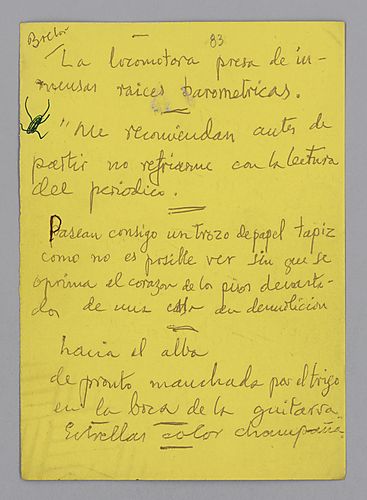 Breton
83
La locomotora presa de in-
mensas raices barometricas.
"Me recomiendan antes de
partir no resfriarme con la lectura
del periodico.
Pasean consigo un trozo de papel tapiz
como no es posible ver sin que se
oprima el corazon de los pisos devasta-
dos de una casa en demolicion
hacia el alba
de pronto manchada por el trigo
en la boca de la guitarra
Estrellas color champaña.